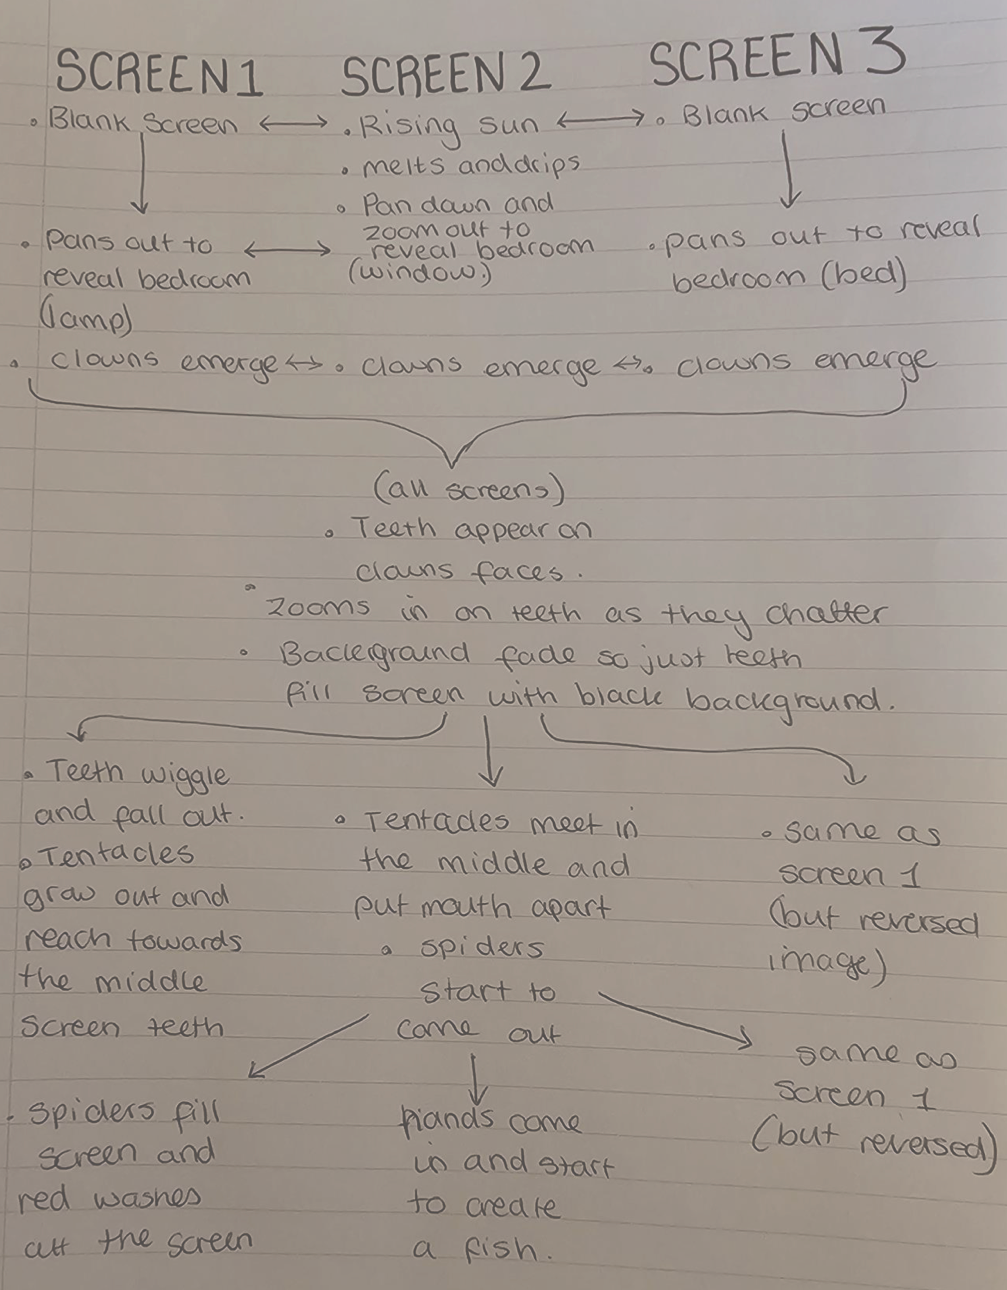 SCREEN 1 SCREEN 2 SCREEN 3
• Blank screen ↔ • Rising sun ↔ • Blank screen
• melts and drips
• Pan down and
zoom out to
reveal bedroom
(window)
• Pans out to
reveal bedroom
(lamp)
• pans out to reveal
bedroom (bed)
• clowns emerge ↔ • clowns emerge ↔ • clowns emerge
(all screens)
• Teeth appear on
clowns faces.
• zooms in on teeth as they chatter
• Background fade so just teeth
fill screen with black background.
• Teeth wiggle
and fall out.
• Tentacles
grow out and
reach towards
the middle
screen teeth
• Tentacles meet in
the middle and
put mouth apart
• spiders
start to
come out
• same as
screen 1
(but reversed
image)
• spiders fill
screen and
red washes
the screen
hands come
in and start
to create
a fish.
same as
screen 1
(but reversed)